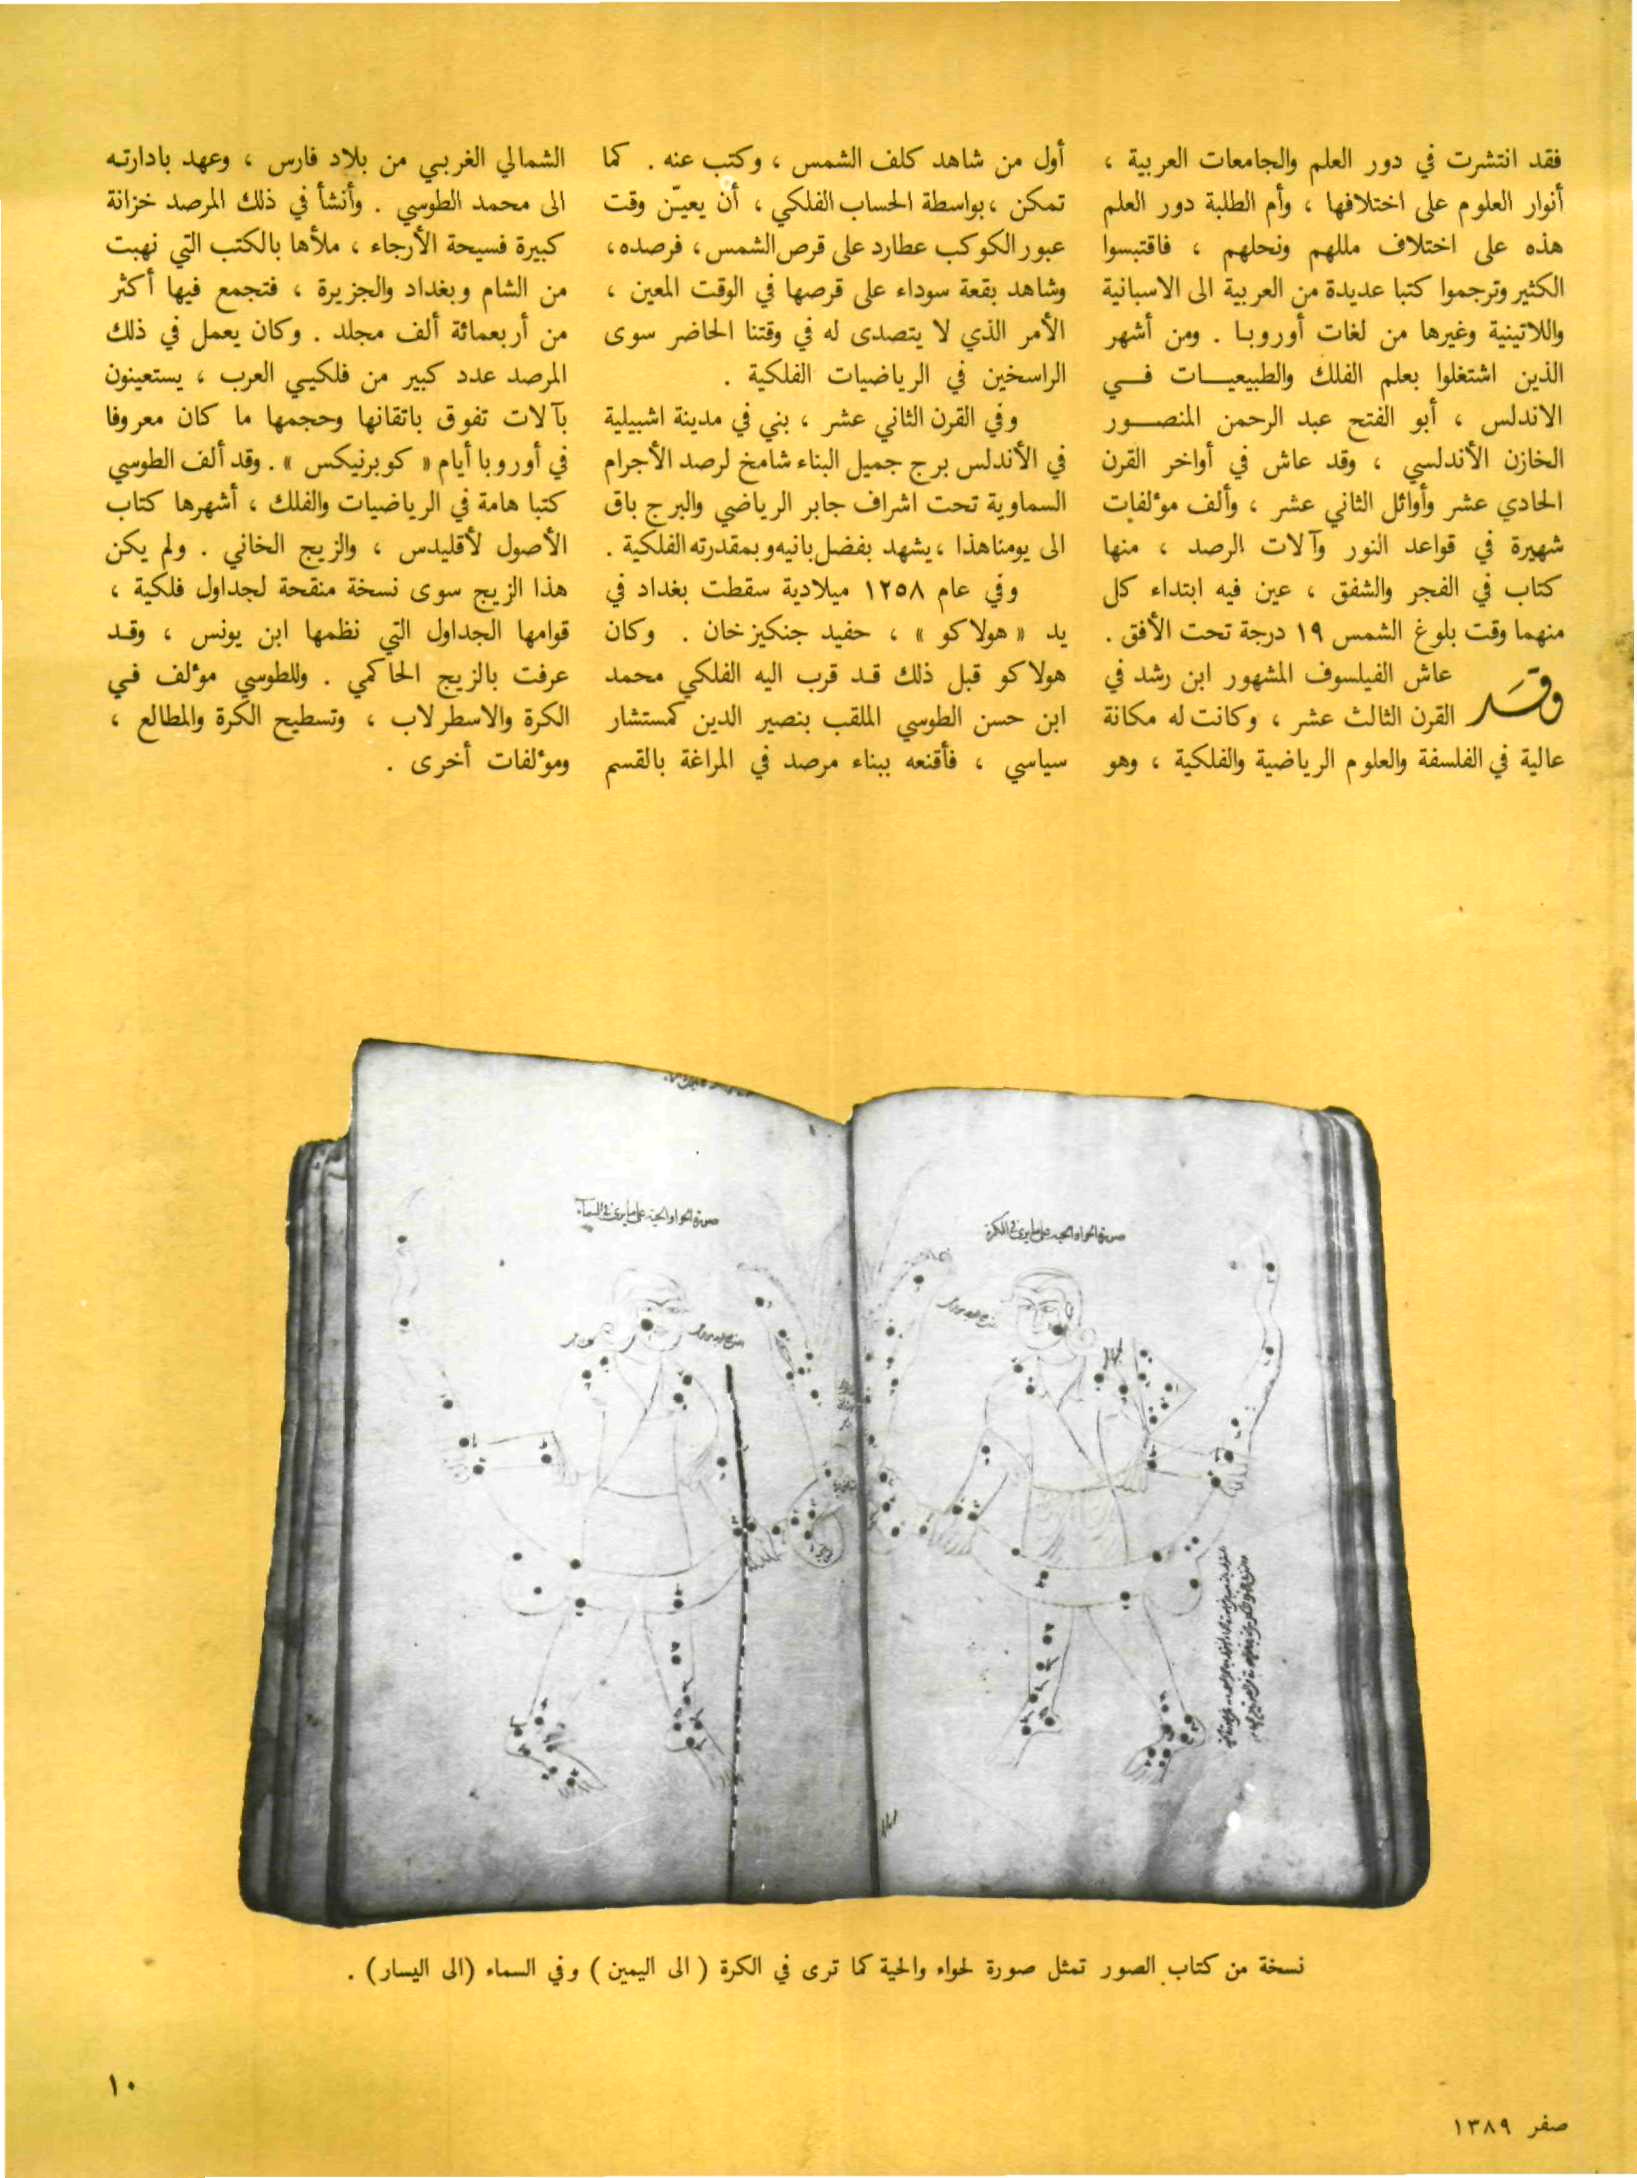 فقد انتشرت في دور العلم والجامعات العربية ،
أنوار العلوم على اختلافها ، وأم الطلبة دور العلم
هذه على اختلاف مللهم ونحلهم ، فاقتبسوا
الكثير وترجموا كتبا عديدة من العربية الى الاسبانية
واللاتينية وغيرها من لغات أوروبا . ومن أشهر
الذين اشتغلوا بعلم الفلك والطبيعيات في
الاندلس ، أبو الفتح عبد الرحمن المنصور
الخازن الأندلسي ، وقد عاش في أواخر القرن
الحادي عشر وأوائل الثاني عشر ، وألف مؤلفات
شهيرة في قواعد النور وآلات الرصد ، منها
كتاب في الفجر والشفق ، عين فيه ابتداء كل
منهما وقت بلوغ الشمس ١٩ درجة تحت الأفق .
وقد عاش الفيلسوف المشهور ابن رشد في
القرن الثالث عشر ، وكانت له مكانة
عالية في الفلسفة والعلوم الرياضية والفلكية ، وهو
أول من شاهد كلف الشمس ، وكتب عنه . كما
تمكن ، بواسطة الحساب الفلكي ، أن يعيّن وقت
عبور الكوكب عطارد على قرص الشمس ، فرصده ،
وشاهد بقعة سوداء على قرصها في الوقت المعين ،
الأمر الذي لا يتصدى له في وقتنا الحاضر سوى
الراسخين في الرياضيات الفلكية .
وفي القرن الثاني عشر ، بني في مدينة اشبيلية
في الأندلس برج جميل البناء شامخ لرصد الأجرام
السماوية تحت اشراف جابر الرياضي والبرج باق
الى يومنا هذا ، يشهد بفضل بانيه وبمقدرته الفلكية .
وفي عام ١٢٥٨ ميلادية سقطت بغداد في
يد « هولاكو » ، حفيد جنكيز خان . وكان
هولاكو قبل ذلك قد قرب اليه الفلكي محمد
ابن حسن الطوسي الملقب بنصير الدين كمستشار
سياسي ، فأقنعه ببناء مرصد في المراغة بالقسم
الشمالي الغربي من بلاد فارس ، وعهد بادارته
الى محمد الطوسي . وأنشأ في ذلك المرصد خزانة
كبيرة فسيحة الأرجاء ، ملأها بالكتب التي نهبت
من الشام وبغداد والجزيرة ، فتجمع فيها أكثر
من أربعمائة ألف مجلد . وكان يعمل في ذلك
المرصد عدد كبير من فلكيي العرب ، يستعينون
بآلات تفوق باتقانها وحجمها ما كان معروفا
في أوروبا أيام « كوبرنيكس » . وقد ألف الطوسي
كتبا هامة في الرياضيات والفلك ، أشهرها كتاب
الأصول لأقليدس ، والزيج الخاني . ولم يكن
هذا الزيج سوى نسخة منقحة لجداول فلكية ،
قوامها الجداول التي نظمها ابن يونس ، وقد
عرفت بالزيج الحاكمي . وللطوسي مؤلف في
الكرة والاسطرلاب ، وتسطيح الكرة والمطالع ،
ومؤلفات أخرى .
صورة الحوا والحية على ما يرى في الكرة
صورة الحوا والحية على ما يرى في السماء
نسخة من كتاب الصور تمثل صورة لحواء والحية كما ترى في الكرة ( الى اليمين ) وفي السماء (الى اليسار) .
١٠
صفر ١٣٨٩